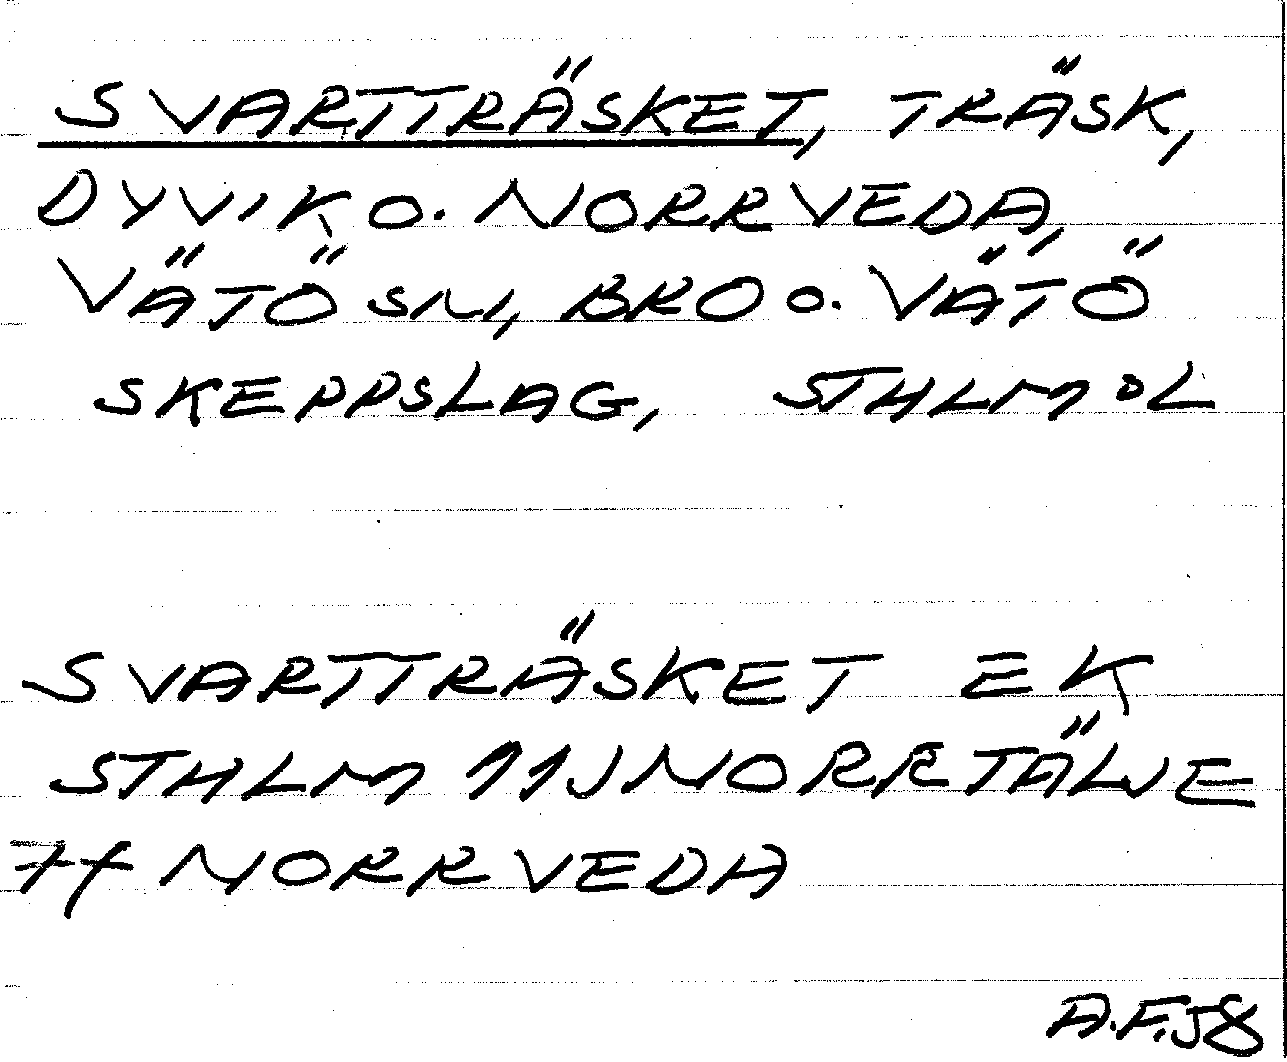 SVARTTRÄSKET, TRÄSK,
DYVIK O. NORRVEDA,
VÄTÖ SN, BRO O. VÄTÖ
SKEPPSLAG, STHLM L
SVARTTRÄSKET EK
STHLM 11J NORRTÄLJE
NORRVEDA
A.F. 58